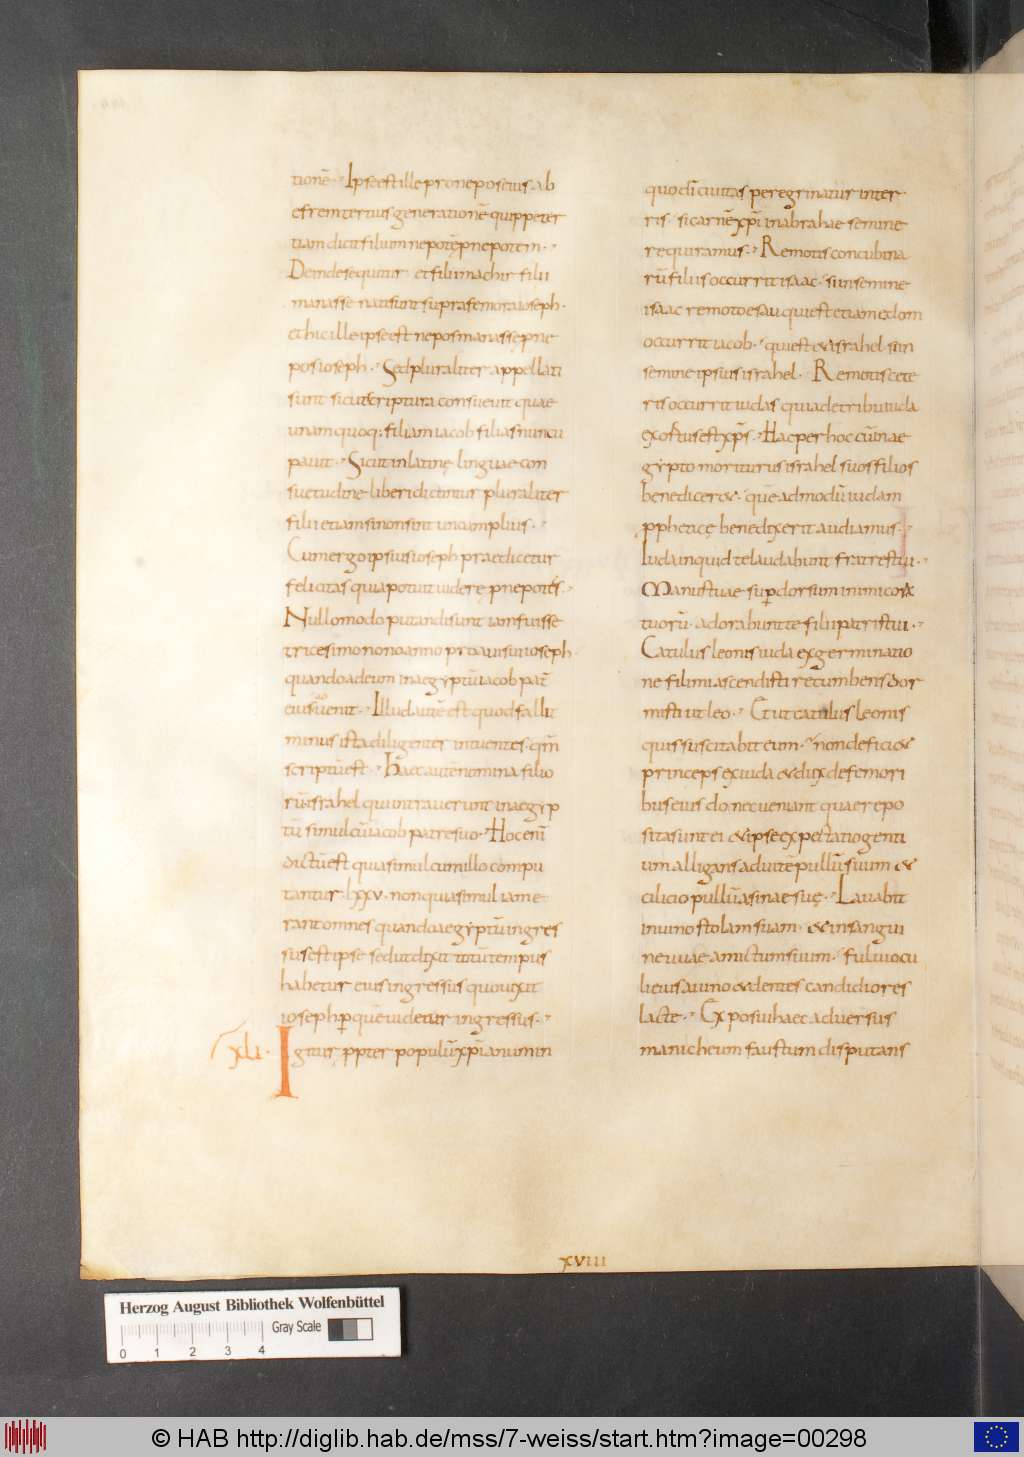 tionē. Ipse est ille pronepos eius. ab
efrem tertius generationē quippe ter
tiam dicit filium nepotē pnepotem.
Deinde sequitur et filii machir filii
manasse nati sunt supra femora ioseph.
et hic ille ipse est nepos manassę pne
pos ioseph. Sed pluraliter appellati
sunt sicut scriptura consuevit quae
unam quoq; filiam iacob filias nuncu
pavit. Sicut in latinę linguae con
suetudine liberi dicuntur pluraliter
filii etiam si non sint uno amplius.
Cum ergo ipsius ioseph praedicetur
felicitas quia potuit videre pnepotes.
Nullo modo putandi sunt iam fuisse
tricesimo nono anno proavi sui ioseph.
quando ad eum in aegyptū iacob pat̄
eius venit. Illud autē est quod fallit
minus ista diligenter intuentes. qm̄
scriptū est. Haec autē nomina filio
rū israhel qui intraverunt in aegyp
tū simul cū iacob patre suo. Hoc enī
dictū est quia simul cum illo compu
tantur. lxxv. non quia simul iam e
rant omnes quando aegyptū ingres
sus est ipse sed ut dixi totū tempus
habetur eius ingressus quo vixit
ioseph p quē videtur ingressus.
xli. Igitur ppter populū xp̄ianum in
quo dī civitas peregrinatur in ter
ris. si carnē xp̄i in abrahae semine
requiramus. Remotis concubina
rū filiis occurrit isaac. si in semine
isaac remoto esau qui est etiam edom
occurrit iacob. qui est & israhel si in
semine ipsius israhel. Remotis cete
ris occurrit iudas quia de tribu iuda
exortus est xp̄s. Hac per hoc cū in ae
gypto moriturus israhel suos filios
benedicer&. quē admodū iudam
pphetice benedixerit audiamus.
Iuda inquid te laudabunt fratres tui.
Manus tuae sup dorsum inimicorx
tuorū. adorabunt te filii patris tui.
Catulus leonis iuda ex germinatio
ne fili mi ascendisti recumbens dor
misti ut leo. Et ut catulus leonis
quis suscitabit eum. non defici&
princeps ex iuda & dux de femori
bus eius donec veniant quae repo
sita sunt ei & ipse expectatio genti
um alligans ad vitē pullū suum &
cilicio pullū asinae suę. Lavabit
in vino stolam suam. & in sangui
ne uvae amictum suum. fulvi ocu
li eius a vino & dentes candidiores
lacte. Exposui haec adversus
manicheum faustum disputans
xviii
Herzog August Bibliothek Wolfenbüttel
Gray Scale
0 1 2 3 4
© HAB http://diglib.hab.de/mss/7-weiss/start.htm?image=00298